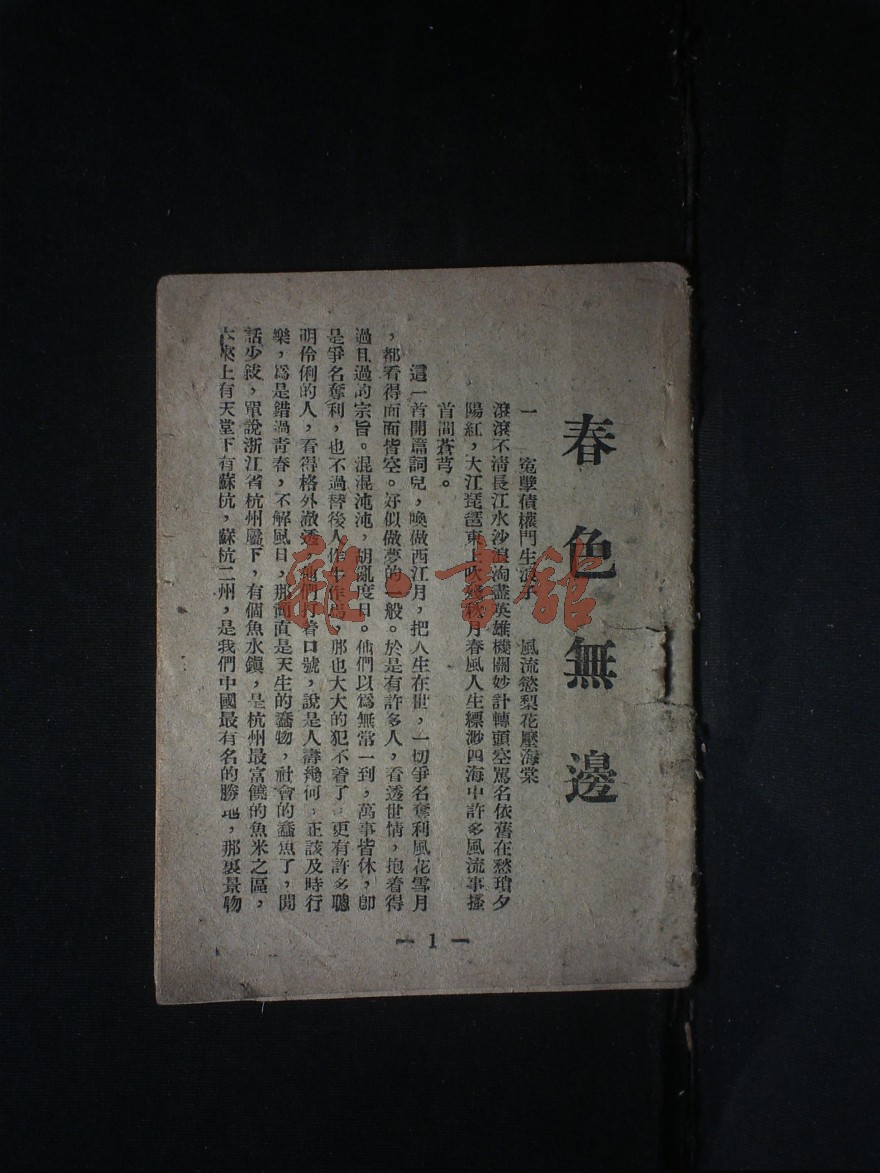 春色無邊
一 冤孽債權門生浪子 風流慾梨花壓海棠
滾滾不淸長江水沙浪淘盡英雄機關妙計轉頭空罵名依舊在愁瑣夕
陽紅，大江琵琶東上吹殘秋月春風人生縹渺四海中許多風流事搔
首問蒼芎。
這一首開篇詞兒，喚做西江月，把人生在世，一切爭名奪利風花雪月
，都看得面面皆空。好似做夢的一般。於是有許多人，看透世情，抱着得
過且過的宗旨。混混沌沌，胡亂度日。他們以爲無常一到，萬事皆休，卽
是爭名奪利，也不過替後人作牛作馬，那也大大的犯不着了。更有許多聰
明伶俐的人，看得格外澈透，他們打着口號，說是人壽幾何，正該及時行
樂，爲是錯過靑春，不解風月，那簡直是天生的蠢物，社會的蠹魚了，閒
話少敍，單說浙江省杭州屬下，有個魚水鎭，是杭州最富饒的魚米之區，
本來上有天堂下有蘇杭，蘇杭二州，是我們中國最有名的勝地，那裏景物
— 1 —
雜·書館